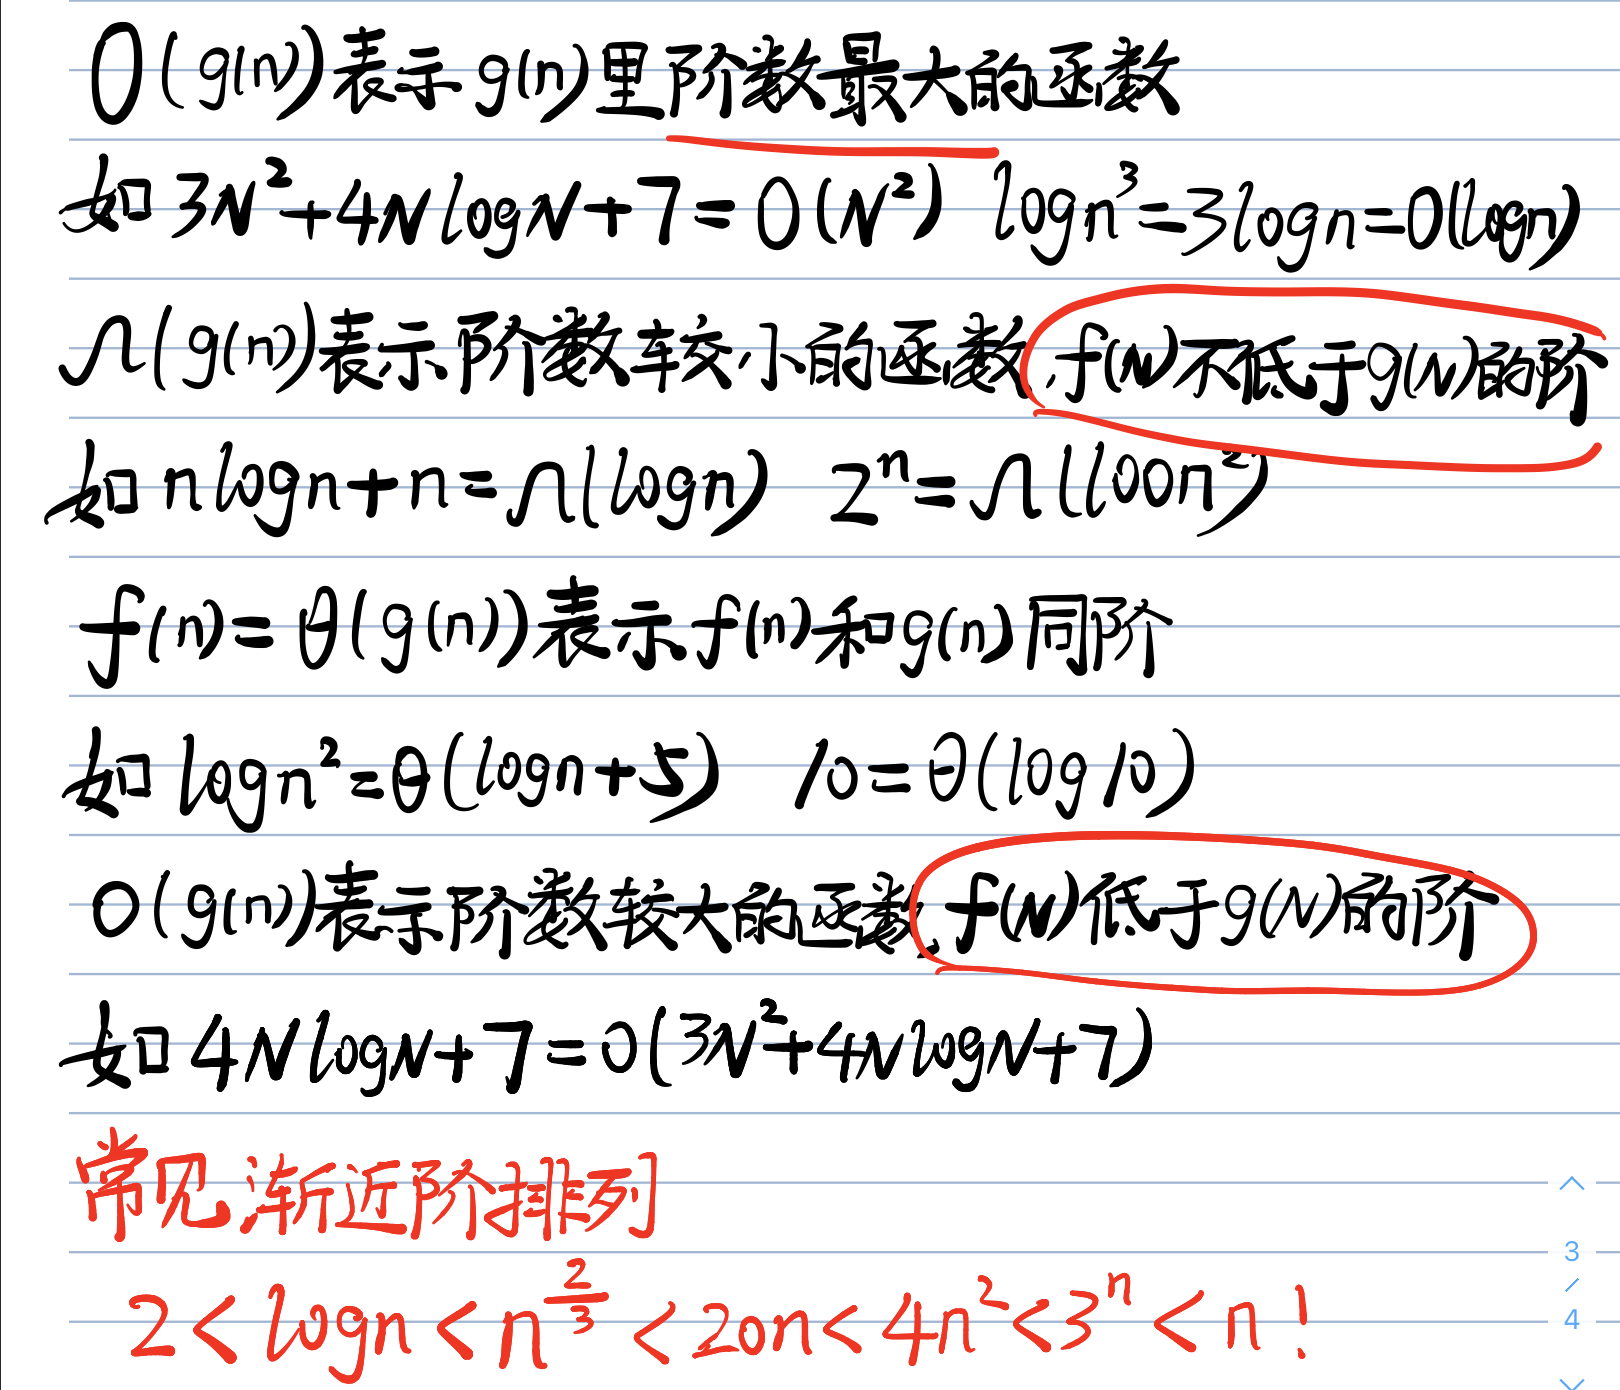 O(g(n))表示g(n)里阶数最大的函数
如 3N²+4NlogN+7=O(N²) logn³=3logn=O(logn)
Ω(g(n))表示阶数较小的函数,f(N)不低于g(N)的阶
如 nlogn+n=Ω(logn) 2ⁿ=Ω(100n²)
f(n)=θ(g(n))表示f(n)和g(n)同阶
如 logn²=θ(logn+5) 10=θ(log10)
o(g(n))表示阶数较大的函数,f(N)低于g(N)的阶
如 4NlogN+7=o(3N²+4NlogN+7)
常见渐近阶排列
2<logn<n^(2/3)<20n<4n²<3ⁿ<n!
3
/
4